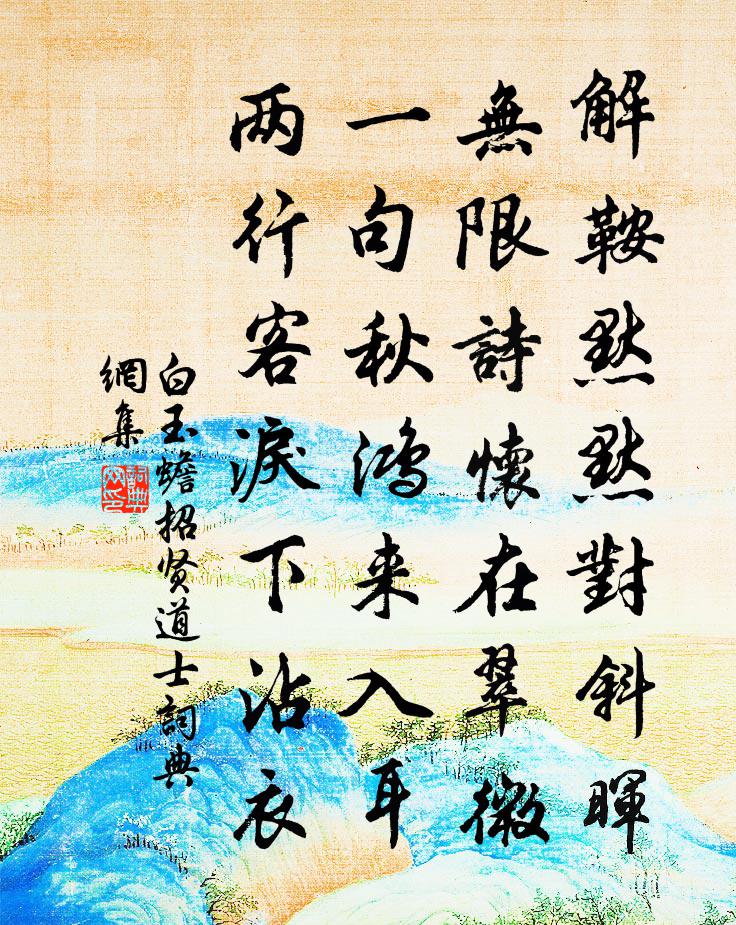 解鞍黙黙對斜暉
無限詩懷在翠微
一句秋鴻来入耳
两行客淚下沾衣
白玉蟾招贤道士詞典
網集